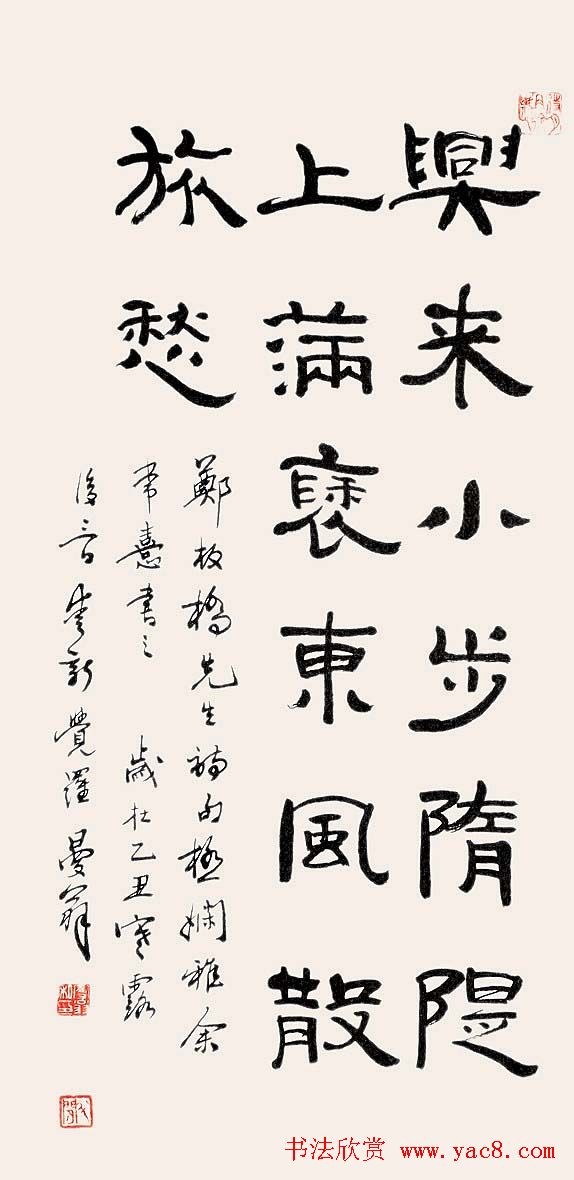 興来小步隋隄
上滿褎東風散
旅愁
鄭板橋先生詩句極嫻雅余
常憙書之 歲在乙丑寒露
後三日愛新覺羅曼翁
书法欣赏 www.yac8.com